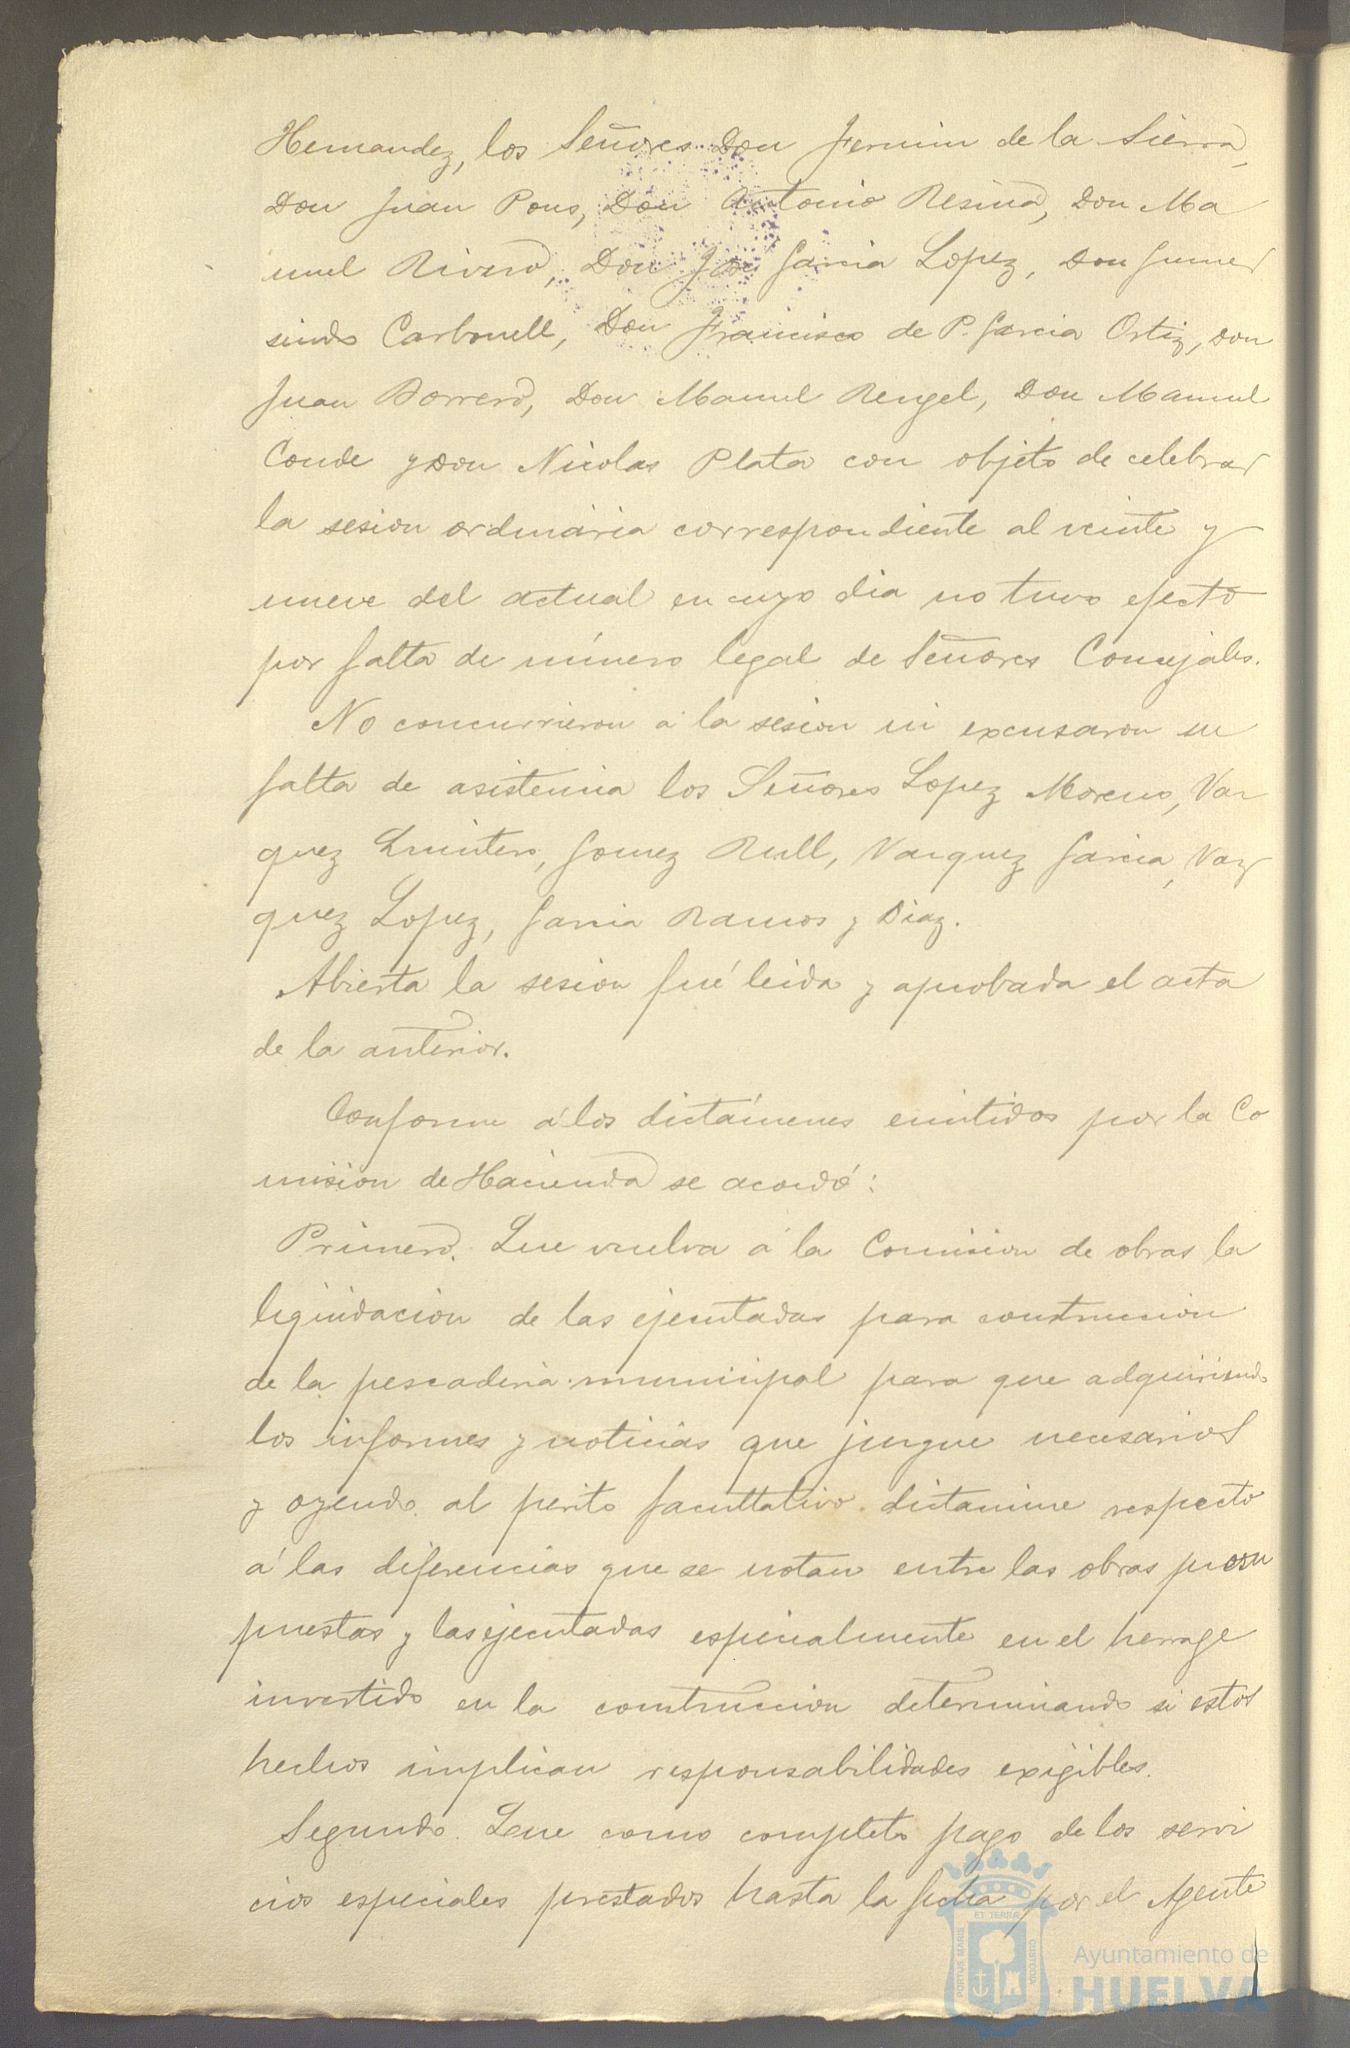 Hernandez, los Señores Don Fermin de la Sierra,
Don Juan Pons, Don Antonio Resina, Don Ma
nuel Rivero, Don José Garcia Lopez, Don Gumer
sindo Carbonell, Don Francisco de P. Garcia Ortiz, Don
Juan Borrero, Don Manuel Rengel, Don Manuel
Conde y Don Nicolas Plata con objeto de celebrar
la sesion ordinaria correspondiente al veinte y
nueve del actual en cuyo dia no tuvo efecto
por falta de número legal de Señores Concejales.
No concurrieron á la sesion ni excusaron su
falta de asistencia los Señores Lopez Moreno, Vaz
quez Quintero, Gomez Rull, Vazquez Garcia, Vaz
quez Lopez, Garcia Ramos y Diaz.
Abierta la sesion fué leida y aprobada el acta
de la anterior.
Conforme á los dictámenes emitidos por la Co
mision de Hacienda se acordó:
Primero. Que vuelva á la Comision de obras la
liquidacion de las ejecutadas para construccion
de la pescaderia municipal para que adquiriendo
los informes y noticias que juzgue necesarios
y oyendo al perito facultativo dictamine respecto
á las diferencias que se notan entre las obras presu
puestas y las ejecutadas especialmente en el herrage
invertido en la construccion determinando si estos
hechos implican responsabilidades exigibles.
Segundo. Que como completo pago de los servi
cios especiales prestados hasta la fecha por el Agente
PORTUS MARIS
ET TERRÆ
CUSTODIA
Ayuntamiento de
HUELVA